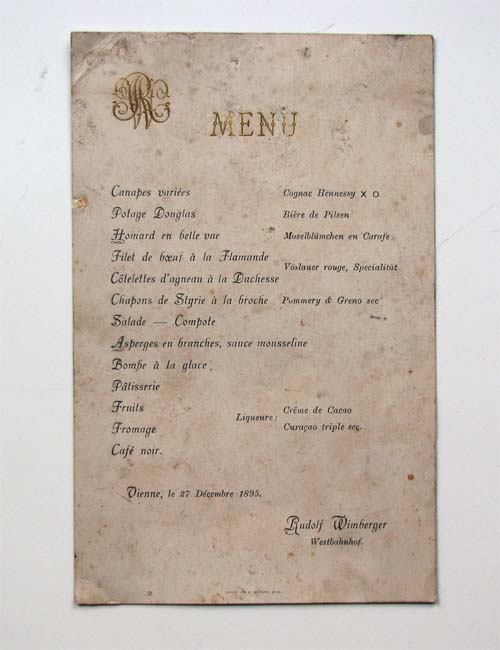 MENU
Canapes variées Cognac Hennessy x o
Potage Douglas Bière de Pilsen
Homard en belle vue Moselblümchen en Carafe
Filet de bœuf à la Flamande
Vöslauer rouge, Specialität
Côtelettes d'agneau à la Duchesse
Chapons de Styrie à la broche Pommery & Greno sec
Salade — Compote
Asperges en branches, sauce mousseline
Bombe à la glace
Pâtisserie
Fruits Crême de Cacao
Liqueure:
Fromage Curaçao triple sec.
Café noir.
Vienne, le 27 Décembre 1895.
Rudolf Wimberger
Westbahnhof.